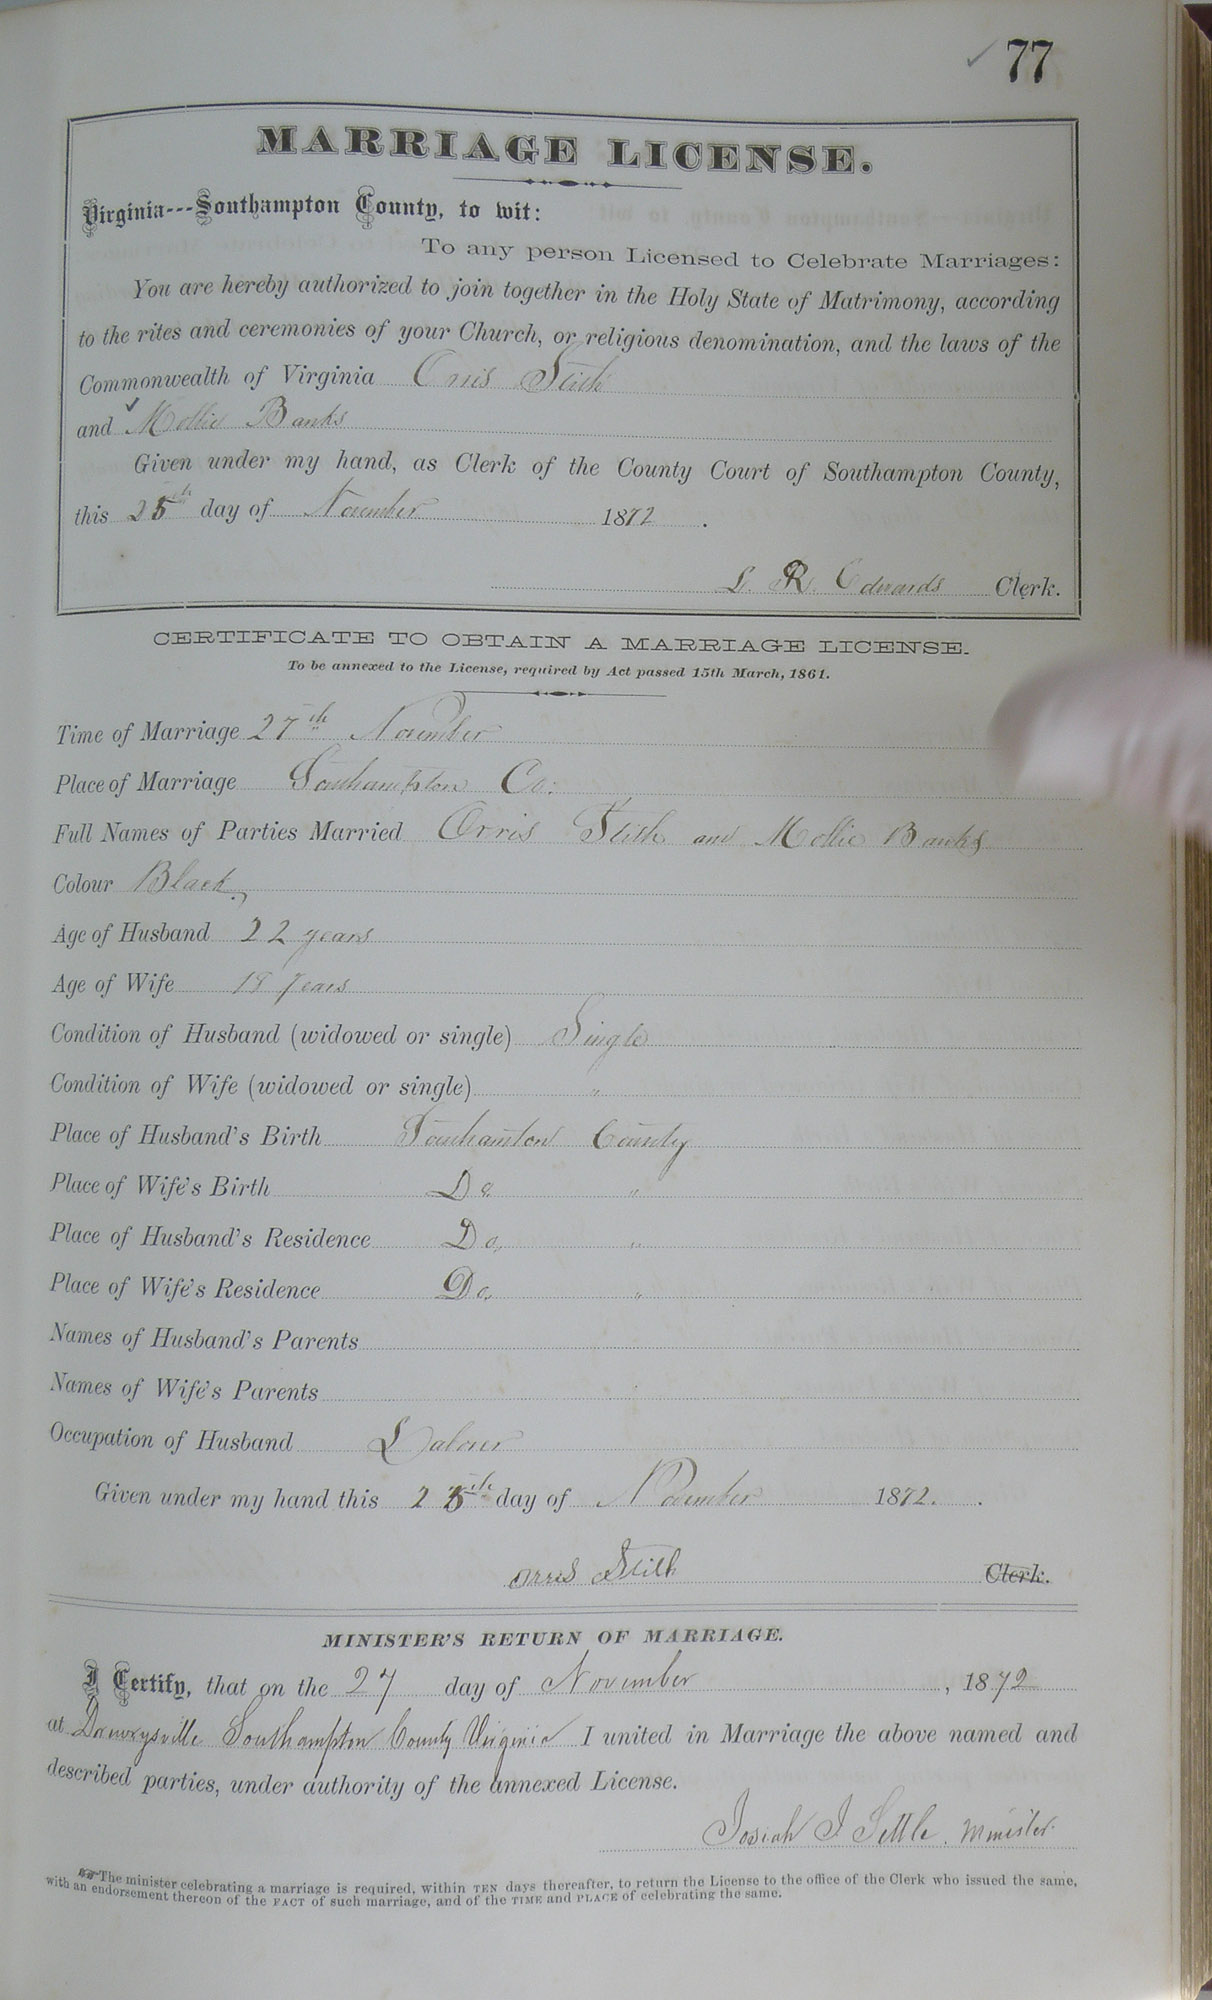 77
MARRIAGE LICENSE.
Virginia---Southampton County, to wit:
To any person Licensed to Celebrate Marriages:
You are hereby authorized to join together in the Holy State of Matrimony, according
to the rites and ceremonies of your Church, or religious denomination, and the laws of the
Commonwealth of Virginia Orris Stith
and Mollie Banks
Given under my hand, as Clerk of the County Court of Southampton County,
this 25th day of November 1872.
L. R. Edwards Clerk.
CERTIFICATE TO OBTAIN A MARRIAGE LICENSE.
To be annexed to the License, required by Act passed 15th March, 1861.
Time of Marriage 27th November
Place of Marriage Southampton Co:
Full Names of Parties Married Orris Stith and Mollie Banks
Colour Black,
Age of Husband 22 years
Age of Wife 18 years
Condition of Husband (widowed or single) Single
Condition of Wife (widowed or single) "
Place of Husband's Birth Southamton County
Place of Wife's Birth Do. "
Place of Husband's Residence Do, "
Place of Wife's Residence Do, "
Names of Husband's Parents
Names of Wife's Parents
Occupation of Husband Laborer
Given under my hand this 25th day of November 1872.
orris Stith Clerk.
MINISTER'S RETURN OF MARRIAGE.
I Certify, that on the 27 day of November, 1872
at Southampton County Virginia I united in Marriage the above named and
described parties, under authority of the annexed License.
Josiah J. Settle. Minister.
The minister celebrating a marriage is required, within TEN days thereafter, to return the License to the office of the Clerk who issued the same,
with an endorsement thereon of the FACT of such marriage, and of the TIME and PLACE of celebrating the same.